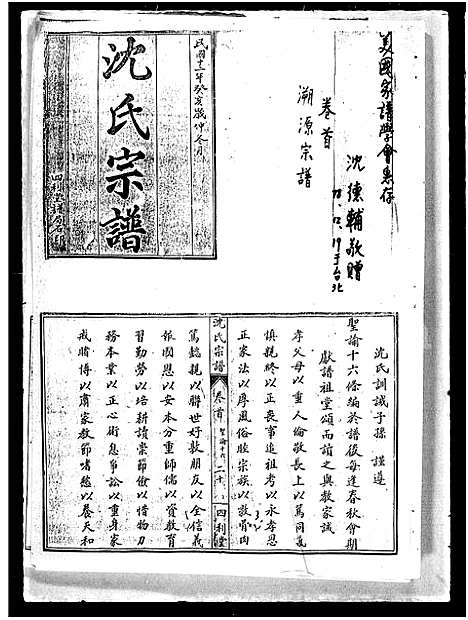 美國家譜學會惠存
沈德輔敬贈
72、12、19于台北
卷首
溯源宗譜
民國十二年癸亥歲仲冬月
沈氏宗譜
四利堂
沈氏訓誡子孫 謹遵
聖諭十六條編於譜後每逢春秋會期
獻譜祖堂頌而讀之與教家誡
孝父母以重人倫敬長上以篤同氣
慎親終以正喪事追祖考以永孝思
正家法以厚風俗睦宗族以敦骨肉
沈氏宗譜 卷首 聖諭十六 二十 四利堂
篤懿親以聯世好敦朋友以全信義
報國恩以安本分重師儒以資教育
習勤勞以培耕讀崇節儉以惜物力
務本業以正心術息爭訟以重身家
戒賭博以肅家教節嗜慾以養天和